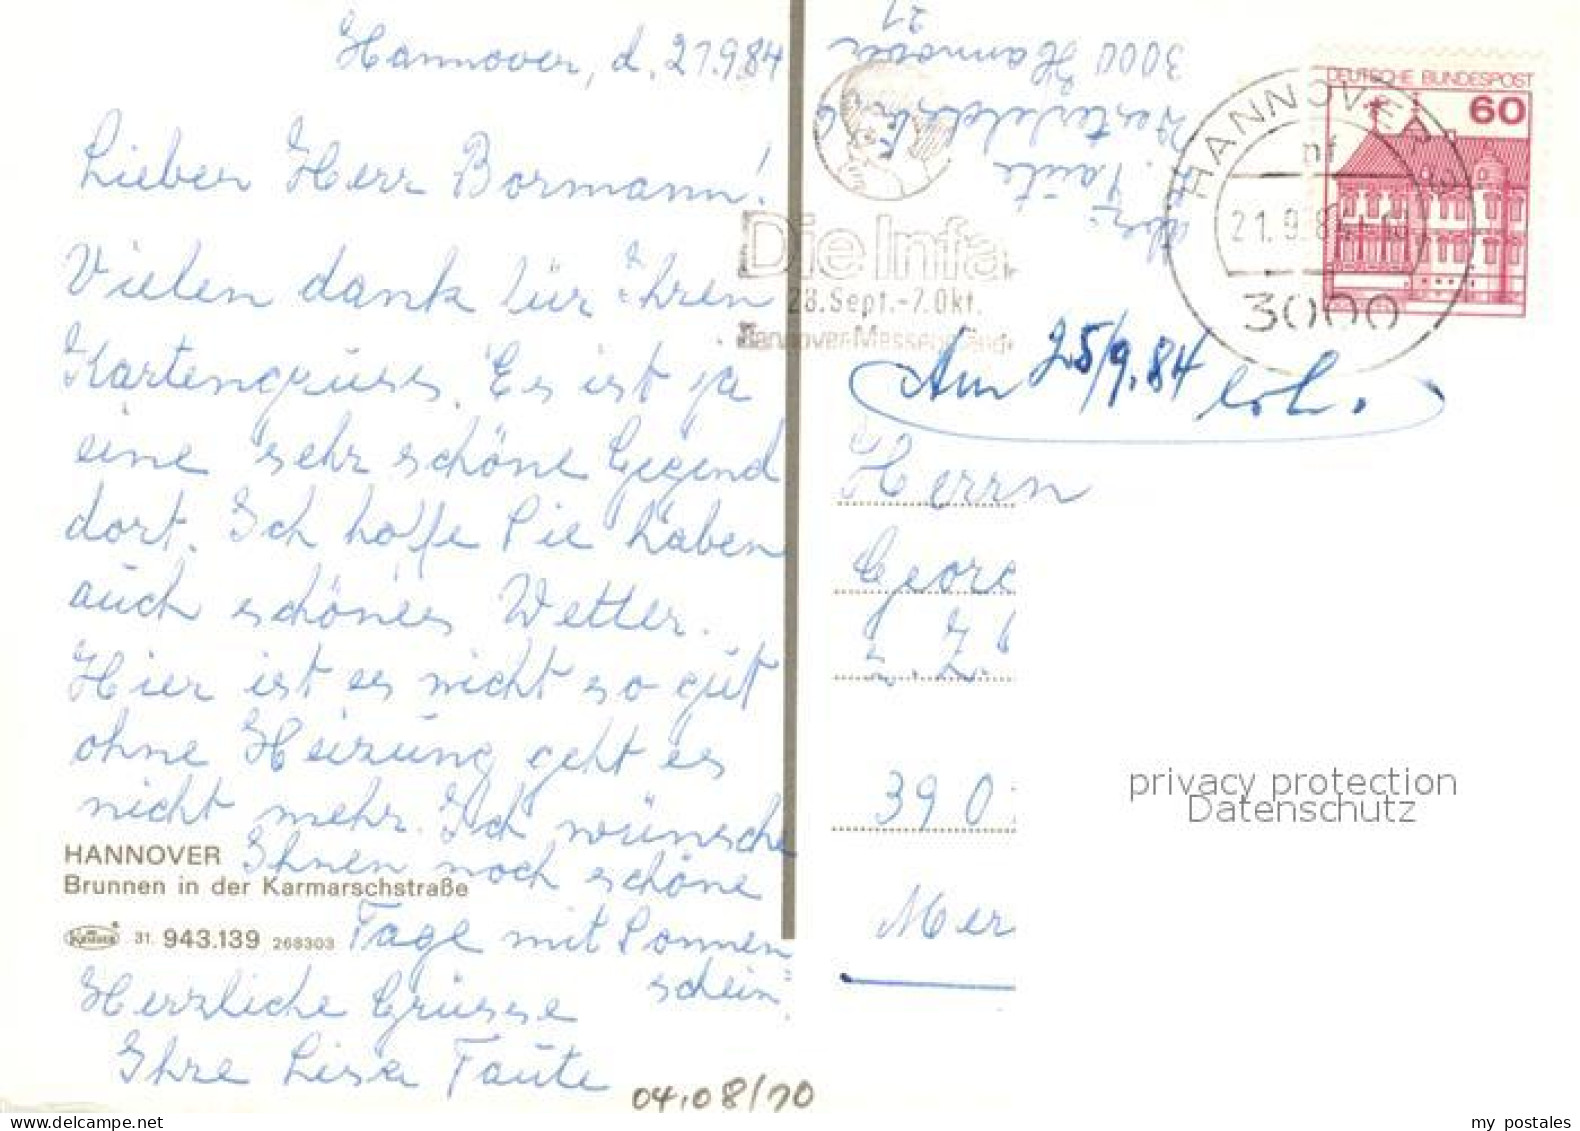 Hannover, d. 21.9.84
Lieber Herr Bormann!
Vielen dank für Ihren
Kartengruss. Es ist ja
eine sehr schöne Gegend
dort. Ich hoffe Sie haben
auch schönes Wetter.
Hier ist es nicht so gut
ohne Heizung geht es
nicht mehr. Ich wünsche
Ihnen noch schöne
Tage mit Sonnen
schein.
Herzliche Grüsse
Ihre Lisa Taute
HANNOVER
Brunnen in der Karmarschstraße
31. 943.139 268303
04.08/10
L. Taute
3000 Hannover
21
Die Infa
28.Sept.-7.Okt.
Hannover-Messegelände
DEUTSCHE BUNDESPOST
60
HANNOVER
nf
21.9.84
3000
Am 25/9.84
Herrn
Georg
z. Z.
390
Mer
privacy protection
Datenschutz
my postales